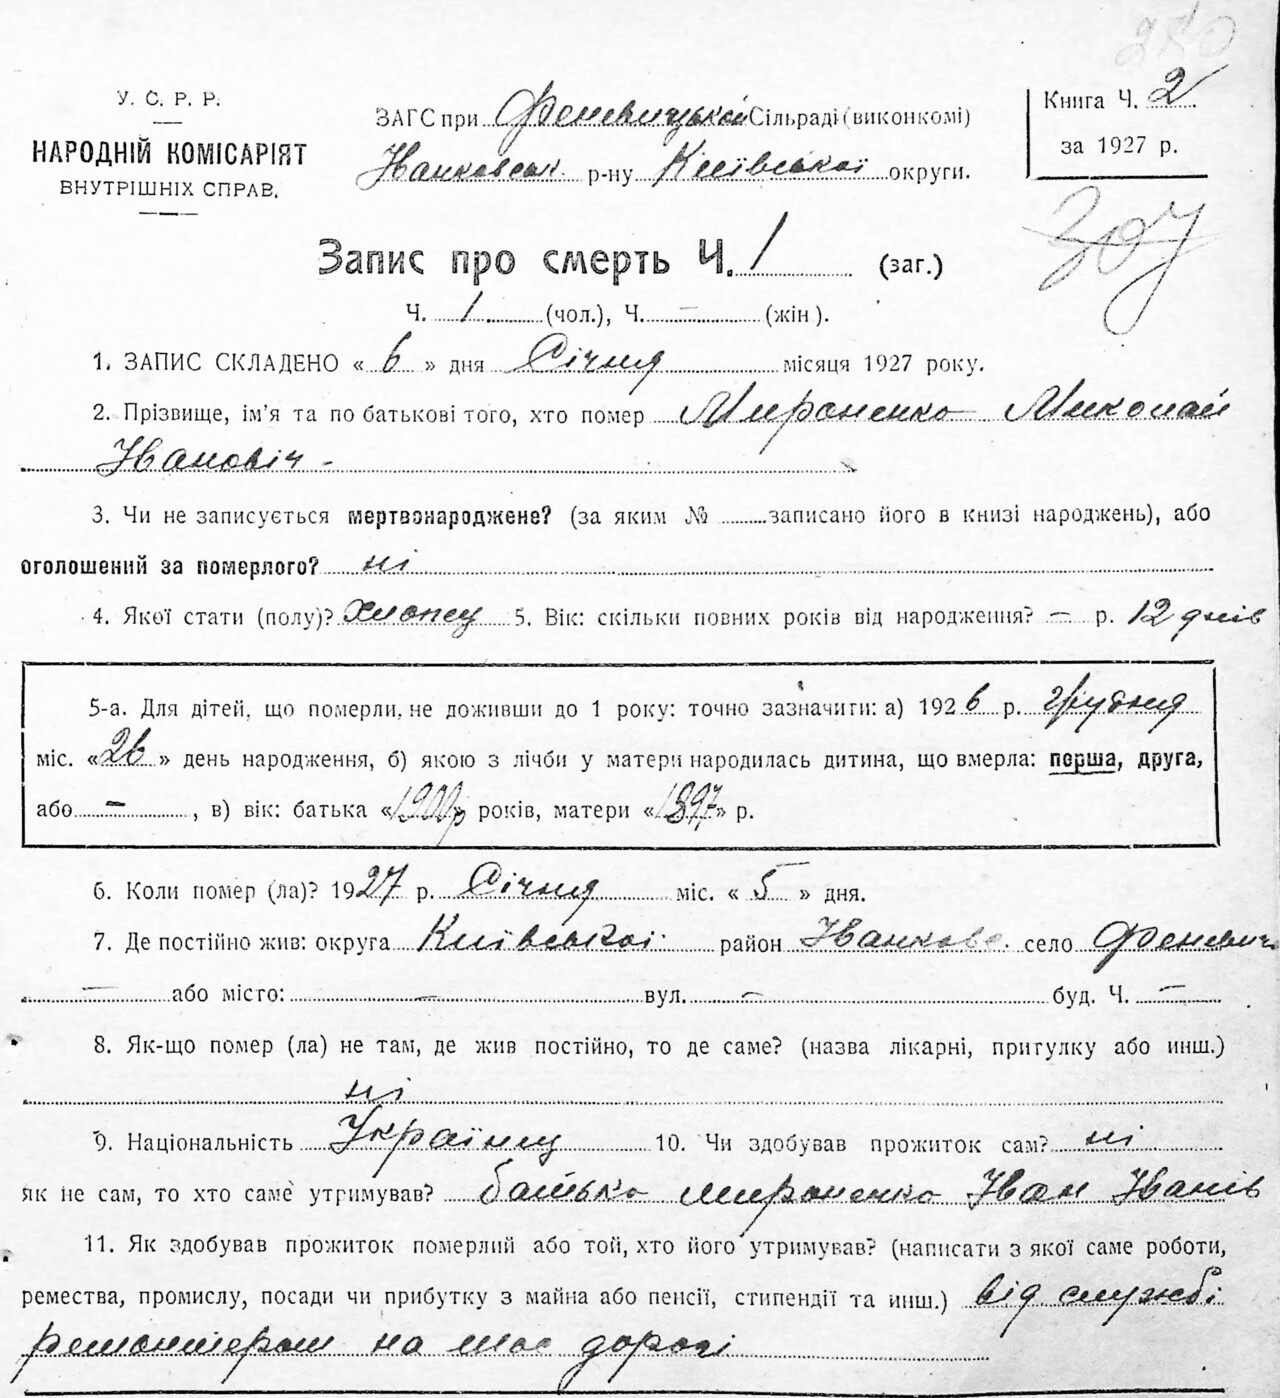 250
У. С. Р. Р.
НАРОДНІЙ КОМІСАРІЯТ
ВНУТРІШНІХ СПРАВ.
ЗАГС при Феневицькой Сільраді (виконкомі)
Іванковськ. р-ну Київської округи.
Книга Ч. 2
за 1927 р.
307
Запис про смерть Ч. 1 (заг.)
Ч. 1 (чол.), Ч. — (жін).
1. ЗАПИС СКЛАДЕНО « 6 » дня Січня місяця 1927 року.
2. Прізвище, ім'я та по батькові того, хто помер Мироненко Миколай
Івановіч -
3. Чи не записується мертвонароджене? (за яким № записано його в книзі народжень), або
оголошений за померлого? ні
4. Якої стати (полу)? хлопец 5. Вік: скільки повних років від народження? — р. 12 днів
5-а. Для дітей, що померли, не доживши до 1 року: точно зазначити: а) 1926 р. грудня
міс. «26» день народження, б) якою з лічби у матери народилась дитина, що вмерла: перша, друга,
або — , в) вік: батька «1900р» років, матери «1897» р.
6. Коли помер (ла)? 1927 р. Січня міс. « 5 » дня.
7. Де постійно жив: округа Київської район Іванковс. село Феневич
— або місто: — вул. — буд. Ч. —
8. Як-що помер (ла) не там, де жив постійно, то де саме? (назва лікарні, притулку або инш.)
ні
9. Національність Українец 10. Чи здобував прожиток сам? ні
як не сам, то хто саме утримував? батько Мироненко Іван Іванів
11. Як здобував прожиток померлий або той, хто його утримував? (написати з якої саме роботи,
ремества, промислу, посади чи прибутку з майна або пенсії, стипендії та инш.) від службі
ремонтером на шос дорогі